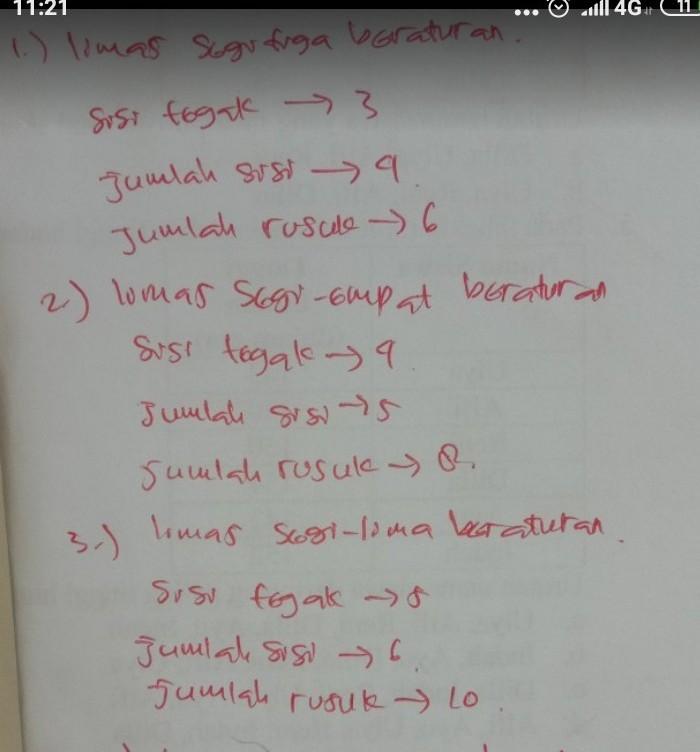 11:21 ... 4G 11
1.) limas segitiga beraturan.
sisi tegak → 3
Jumlah sisi → 4.
Jumlah rusuk → 6
2.) limas segi-empat beraturan
sisi tegak → 4.
Jumlah sisi → 5
Jumlah rusuk → 8.
3.) limas segi-lima beraturan.
sisi tegak → 5
Jumlah sisi → 6.
Jumlah rusuk → 10.